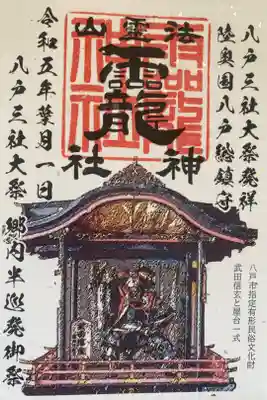 八戸三社大祭発祥
陸奥国八戸総鎮守
法霊山
龗神社
令和五年葉月一日
八戸三社大祭
八戸市指定有形民俗文化財
武田信玄と屋台一式